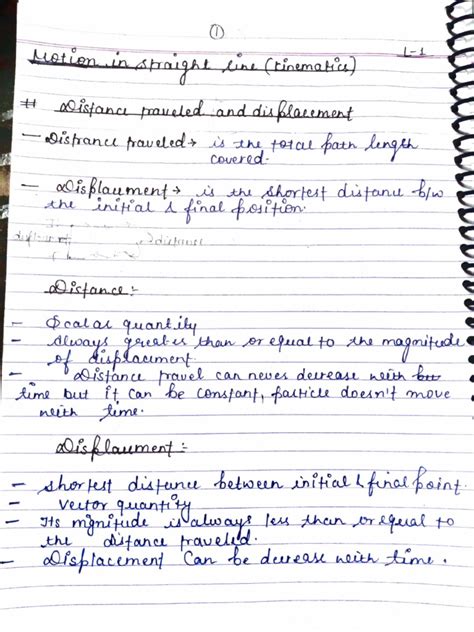 ①
L-1
Motion in straight line (Kinematics)
# Distance traveled and displacement
— Distrance traveled → is the total path length
covered.
— Displaument → is the shortest distance b/w
the initial & final position.
Distance :-
— Scalar quantity
— Always greater than or equal to the magnitude
of displacement.
— Distance travel can never decrease with
time but it can be constant, particle doesn't move
with time.
Displaument :-
— shortest distance between initial & final point.
— Vector quantity
— Its mgnitude is always less than or equal to
the distance traveled.
— Displacement Can be decrease with time.